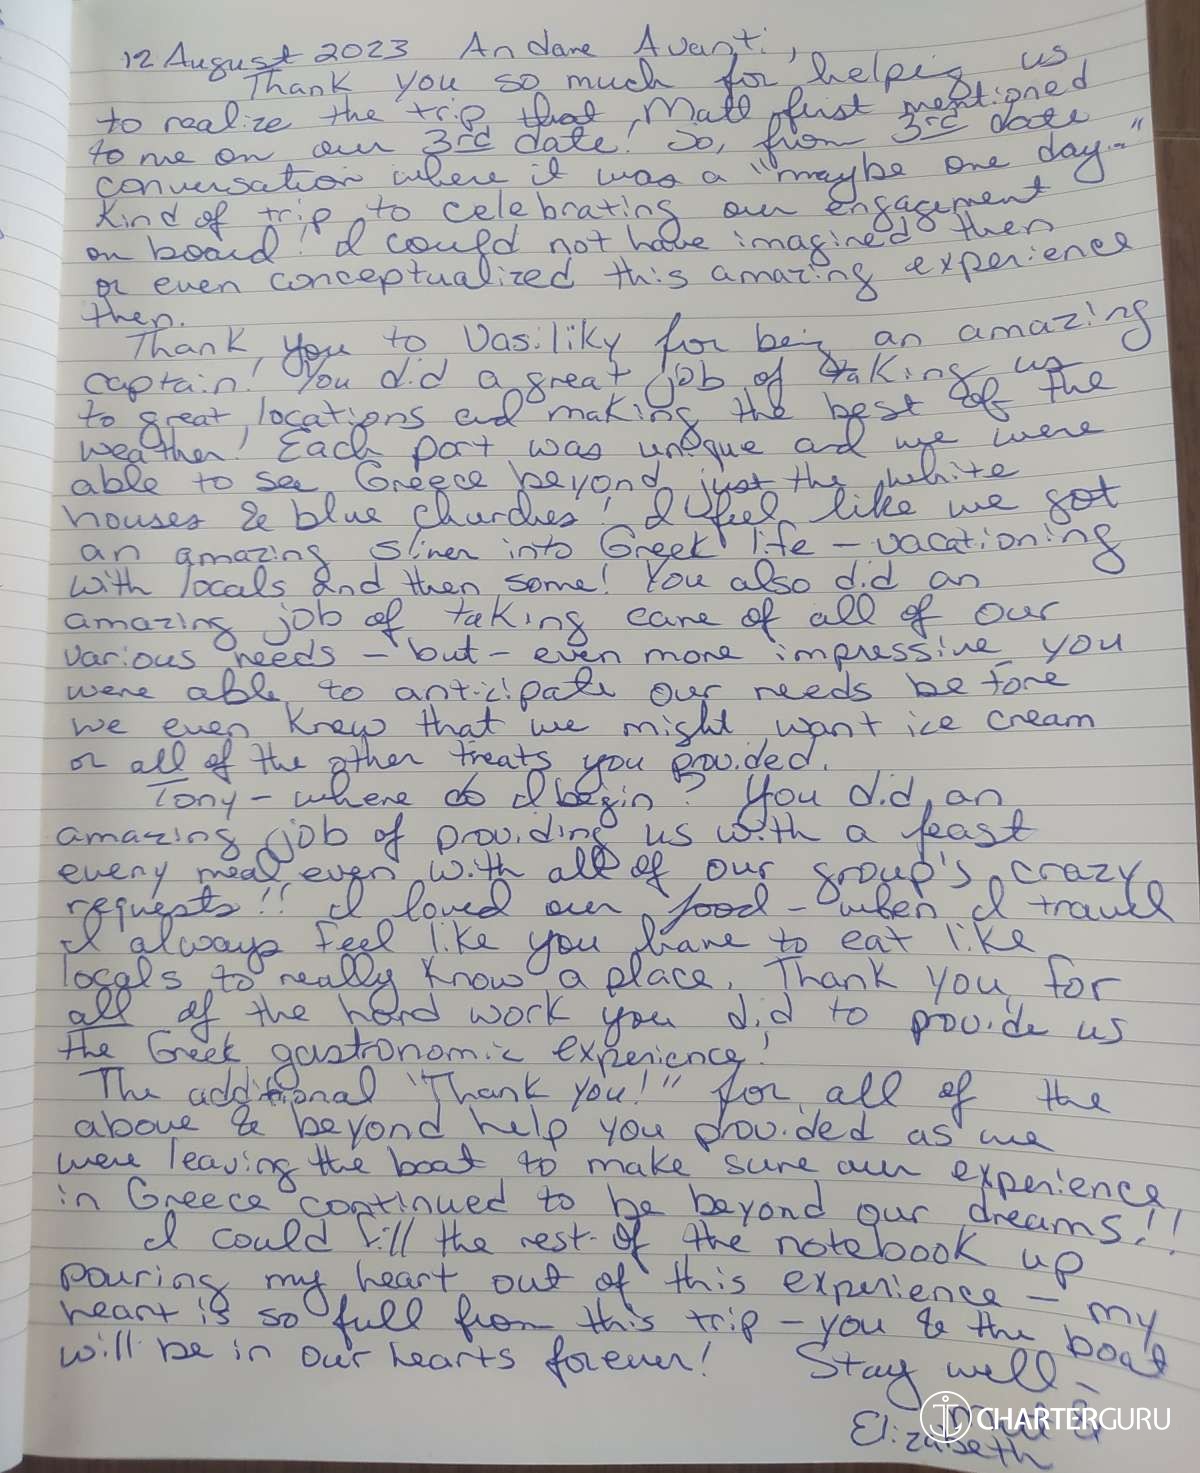 12 August 2023 Andare Avanti,
Thank you so much for helping us
to realize the trip that Matt first mentioned
to me on our 3rd date! So, from 3rd date
conversation where it was a "maybe one day..."
kind of trip to celebrating our engagement
on board! I could not have imagined then
or even conceptualized this amazing experience
then.
Thank you to Vasiliky for being an amazing
captain! You did a great job of taking us
to great locations and making the best of the
weather! Each port was unique and we were
able to see Greece beyond just the white
houses & blue churches! I feel like we got
an amazing sliver into Greek life - vacationing
with locals and then some! You also did an
amazing job of taking care of all of our
various needs - but - even more impressive you
were able to anticipate our needs before
we even knew that we might want ice cream
or all of the other treats you provided.
Tony - where do I begin? You did an
amazing job of providing us with a feast
every meal even with all of our group's crazy
requests!! I loved our food - when I travel
I always feel like you have to eat like
locals to really know a place. Thank you for
all of the hard work you did to provide us
the Greek gastronomic experience!
The additional "Thank you!" for all of the
above & beyond help you provided as we
were leaving the boat to make sure our experience
in Greece continued to be beyond our dreams!!
I could fill the rest of the notebook up
pouring my heart out of this experience - my
heart is so full from this trip - you & the boat
will be in our hearts forever! Stay well -
Matt &
Elizabeth
CHARTERGURU